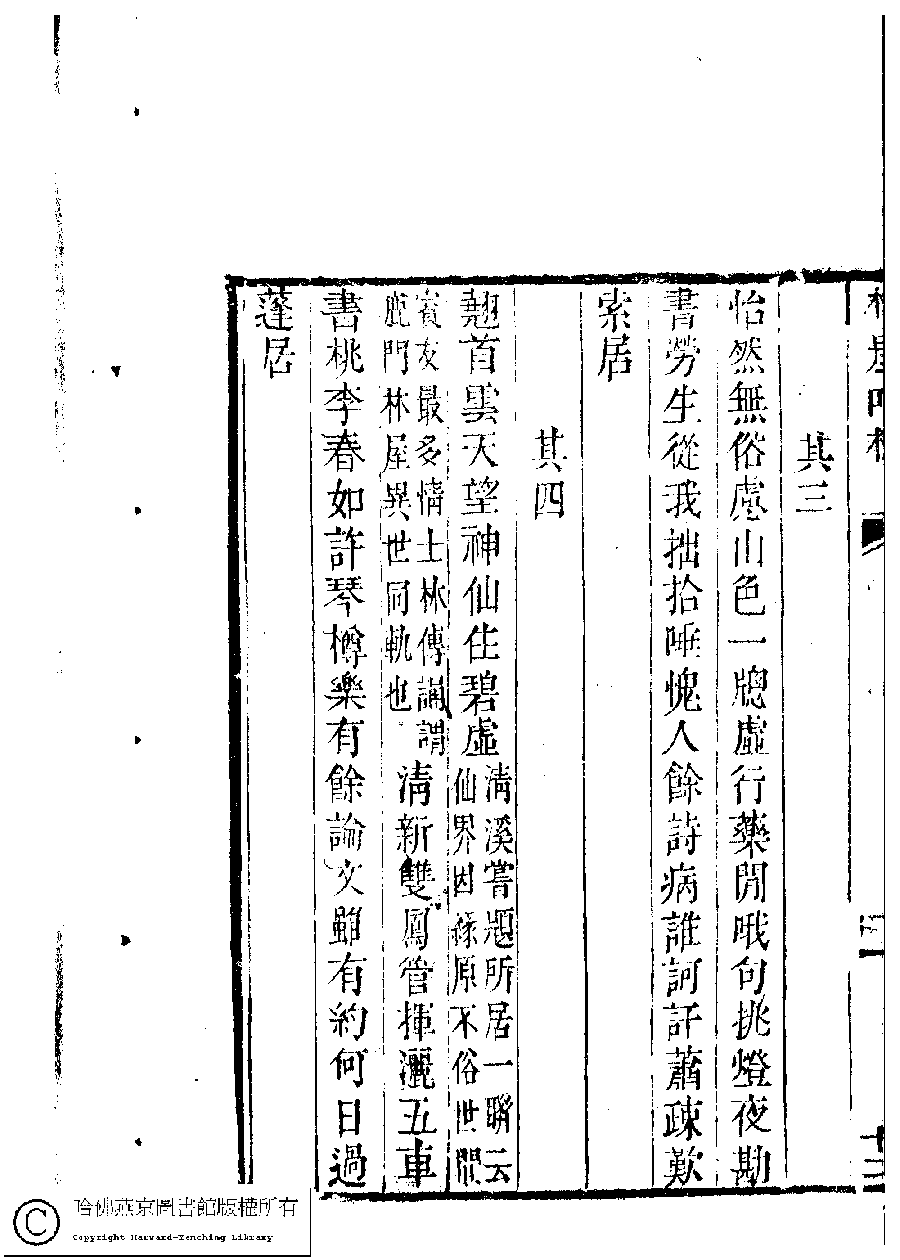 其三
怡然無俗慮山色一牕虛行藥閒哦句挑燈夜勘
書勞生從我拙拾唾愧人餘詩病誰訶訐蕭疎歎
索居
其四
翹首雲天望神仙住碧虛
清溪嘗題所居一聯云
仙界因緣原不俗世間
賓友最多情士林傳誦謂
鹿門林屋異世同軌也
清新雙鳳管揮灑五車
書桃李春如許琴樽樂有餘論文雖有約何日過
蓬居
哈佛燕京圖書館版權所有
Copyright Harvard-Yenching Library